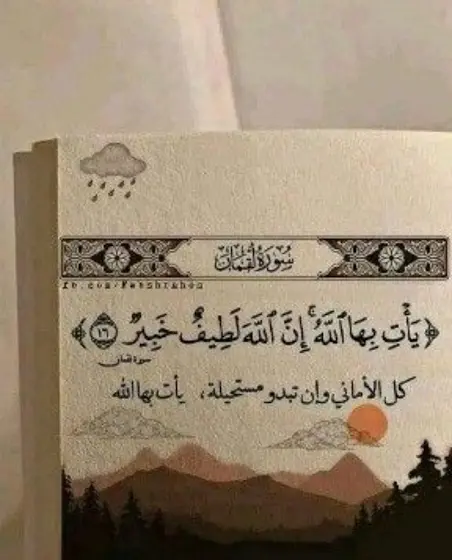 سُورَةُ لُقْمَانَ
﴿يَأْتِ بِهَا ٱللَّهُ ۚ إِنَّ ٱللَّهَ لَطِيفٌ خَبِيرٌ ١٦﴾
سورة لقمان
كل الأماني وإن تبدو مستحيلة، يأت بها الله